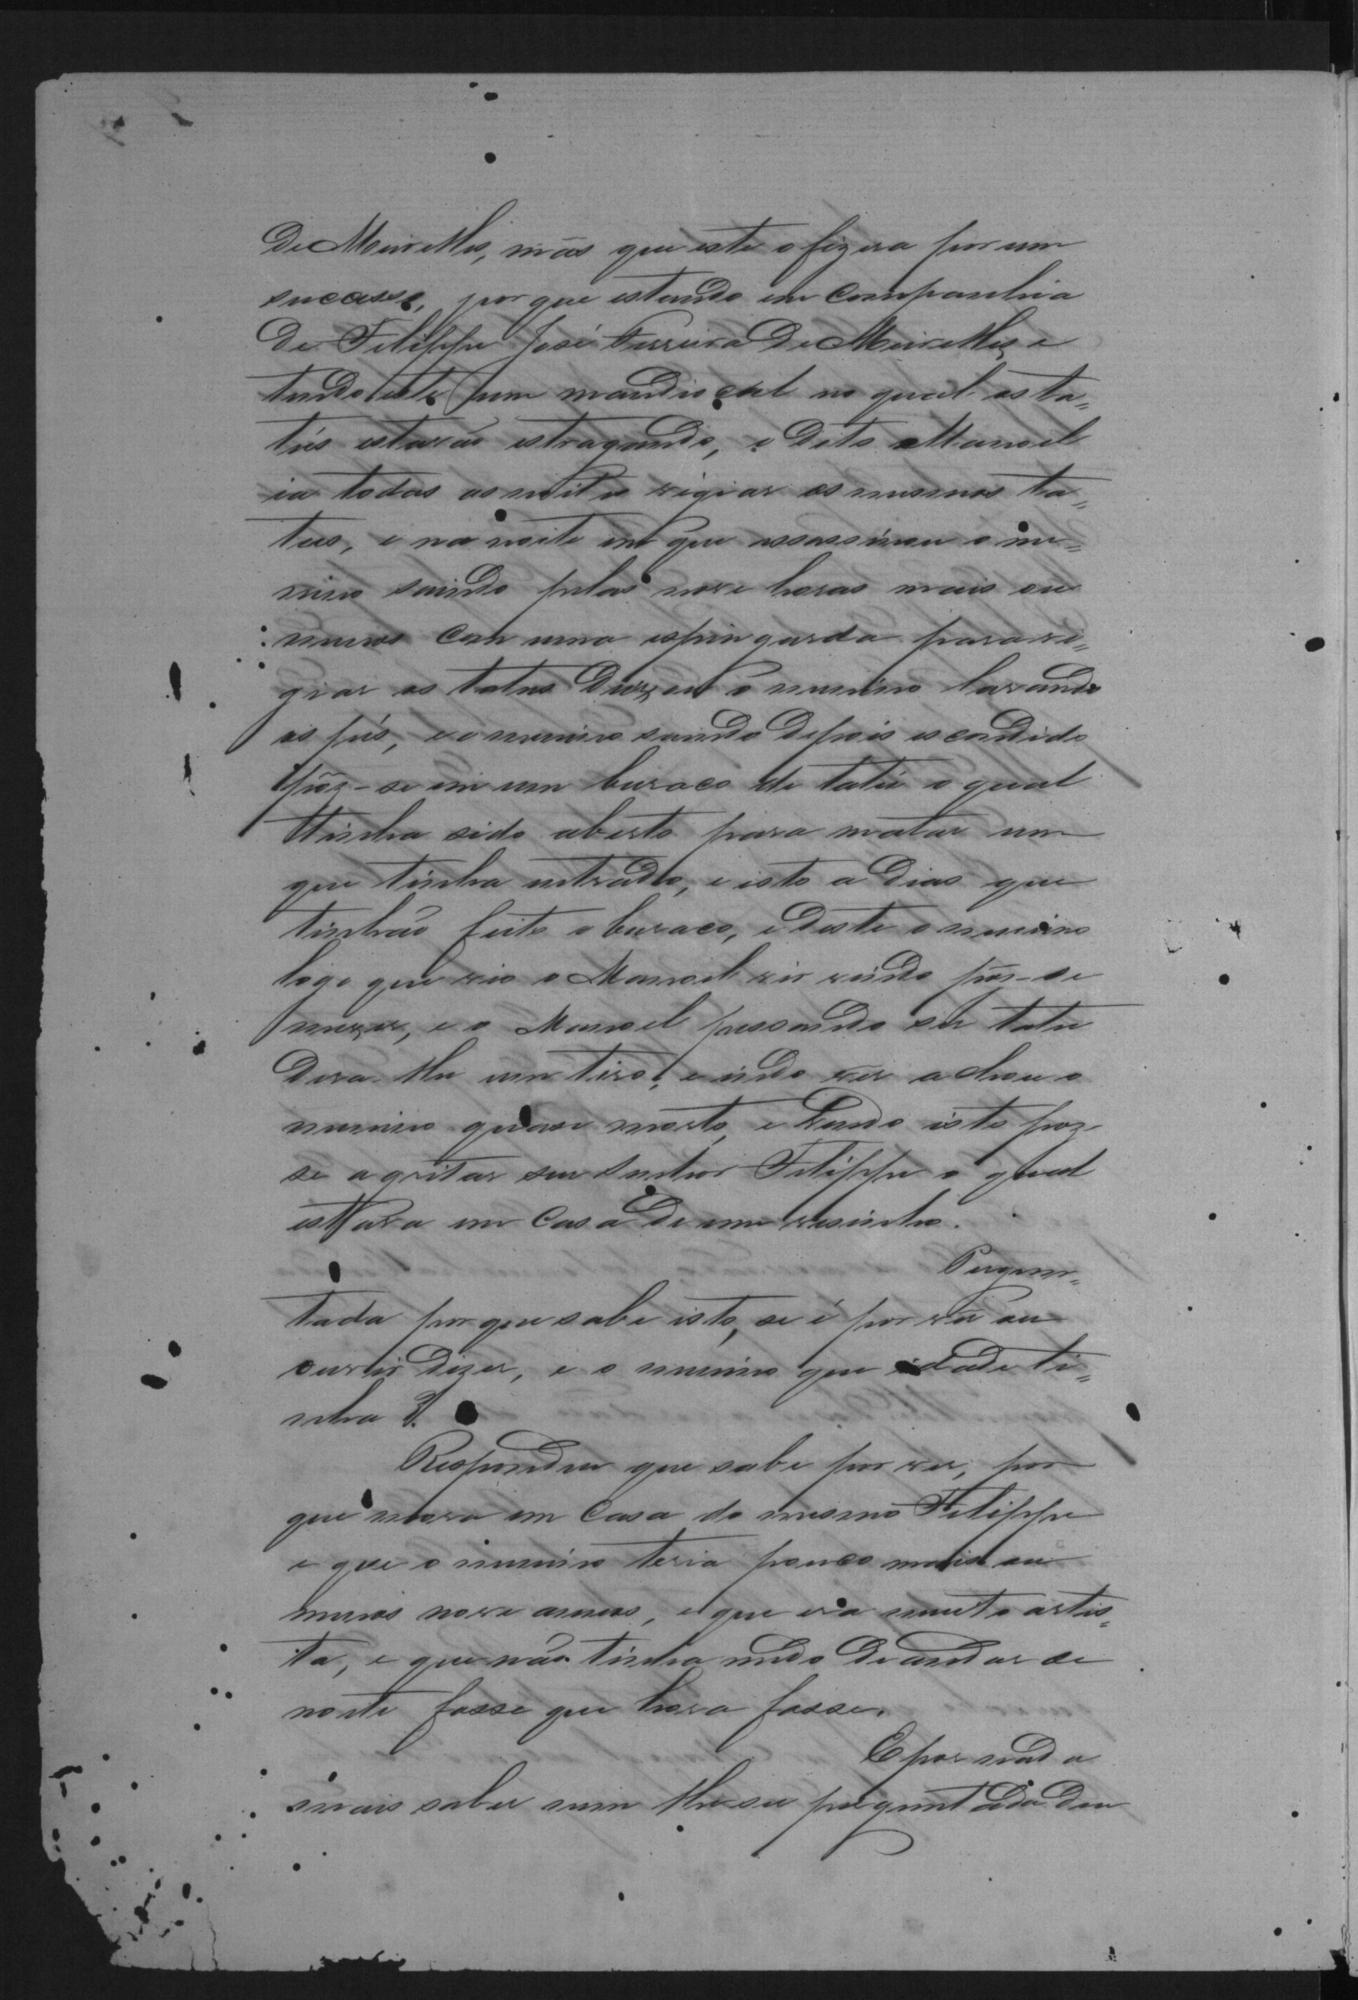 de Meirelles, mas que este o fizera por um
sucasso, por que estando em companhia
de Filippe José Ferreira de Meirelles, e
tendo este hum mandiocal no qual os ta=
tús estavão estragando, e dito Manoel
ia todas as noites vigiar os mesmos ta=
tus, e na noite em que assassinou o me=
nino saindo pelas nove horas mais ou
menos com uma espingarda para vi=
giar os tatus deixou o menino lavando
os pés, e o menino saindo depois escondido
pôz-se em um buraco de tatú o qual
tinha sido aberto para matar um
que tinha entrado, e isto a dias que
tinhão feito o buraco, e deste o menino
logo que vio o Manoel vir vindo pôs-se
mexer, e o Manoel pensando ser tatu
dera-lhe um tiro, e indo ver achou o
menino quase morto, e vendo isto poz-
se a gritar seu senhor Filippe o qual
estava em casa de um vesinho.
Pergun=
tada por que sabe isto, se é por vêr ou
ouvir dizer, e o menino que idade ti=
nha?
Respondeu que sabe por ver, por
que mora em casa do mesmo Filippe
e que o menino teria pouco mais ou
menos nove annos, e que era muito artis=
ta, e que não tinha medo de andar de
noite fosse que hora fosse.
E por nada
mais saber nem lhe ser perguntada deu